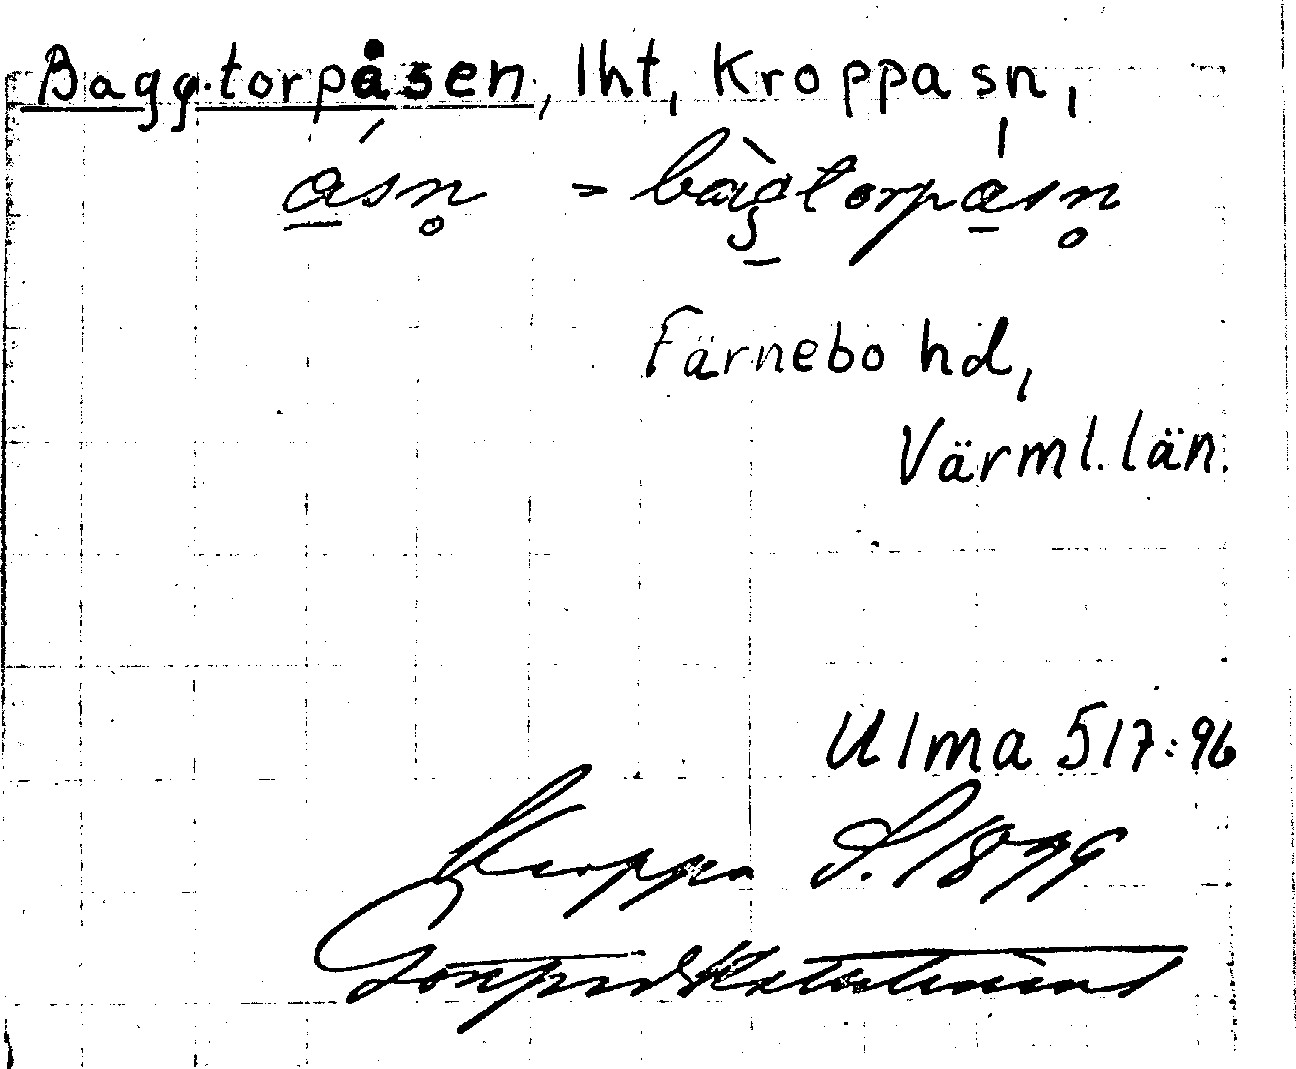 Baggtorpåsen, lht, Kroppa sn,
åsn̥ = bàgtorpåsn̥
Färnebo hd,
Värml. län.
Ulma 517:96
Kroppa S. 1899